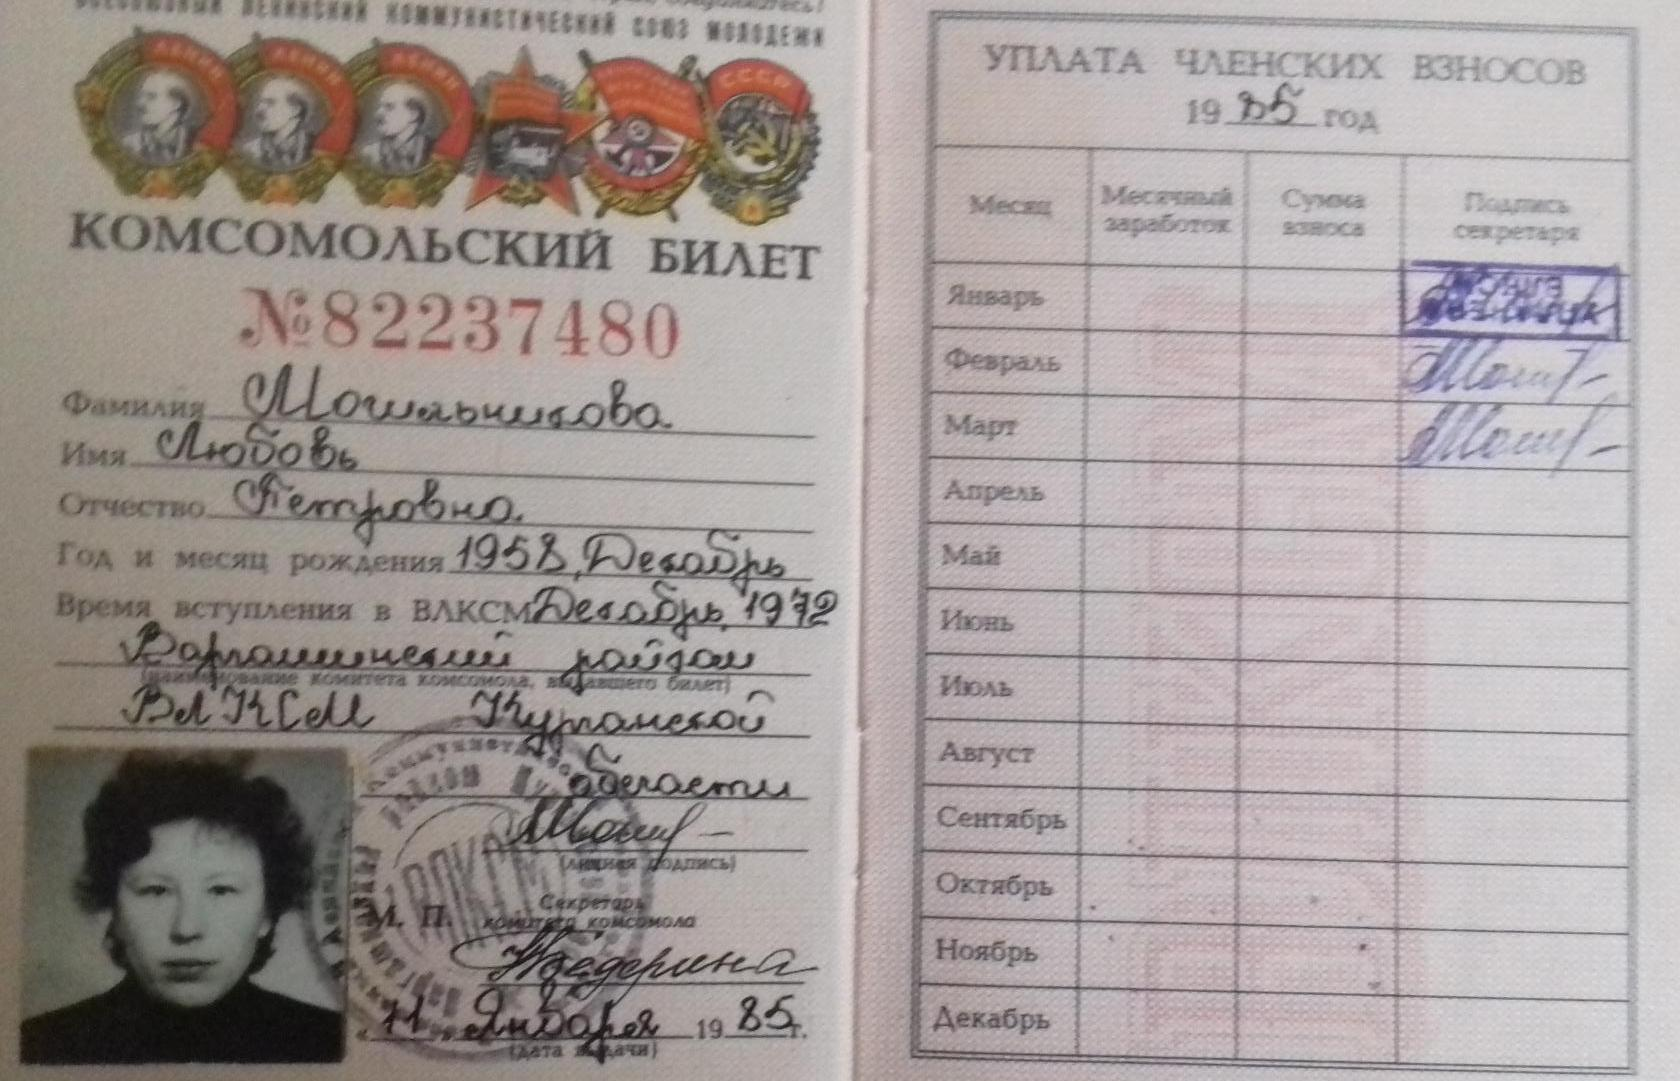 ВСЕСОЮЗНЫЙ ЛЕНИНСКИЙ КОММУНИСТИЧЕСКИЙ СОЮЗ МОЛОДЕЖИ
ЛЕНИН ЛЕНИН ЛЕНИН СССР
КОМСОМОЛЬСКИЙ БИЛЕТ
№82237480
Фамилия Мошльникова
Имя Любовь
Отчество Петровна
Год и месяц рождения 1958, Декабрь
Время вступления в ВЛКСМ Декабрь, 1972
Варгашинский райком
(наименование комитета комсомола, выдавшего билет)
ВЛКСМ Курганской
области
(личная подпись)
М. П.
Секретарь
комитета комсомола
"11" Января 1985 г.
(дата выдачи)
УПЛАТА ЧЛЕНСКИХ ВЗНОСОВ
1985 год
Месяц Месячный заработок Сумма взноса Подпись секретаря
Январь
Февраль
Март
Апрель
Май
Июнь
Июль
Август
Сентябрь
Октябрь
Ноябрь
Декабрь